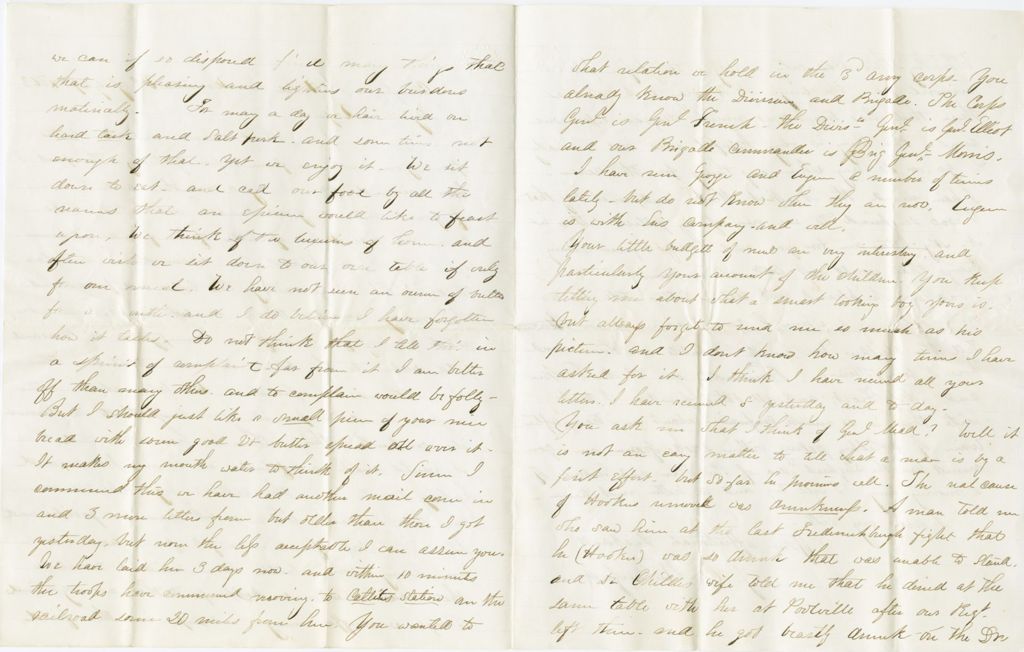 we can if so disposed find many things that
that is pleasing and lightens our burdens
materially. For many a day we have lived on
hard tack and salt pork. and some times not
enough of that. yet we enjoy it. We sit
down to eat. and call our food by all the
names that an epicure would like to feast
upon, We think of the luxuries of home. and
often wish we sit down to our own table if only
for one meal. We have not seen an ounce of butter
for a month. and I do believe I have forgotten
how it tastes. Do not think that I tell this in
a spirit of complaint far from it I am better
off than many others. and to complain would be folly-
But I should just like a small piece of your nice
bread with some good Vt butter spread all over it.
It makes my mouth water to think of it. Since I
commenced this we have had another mail come in
and 3 more letters from but older than those I got
yesterday. but none the less acceptable I can assure you.
We have laid here 3 days now. and within 10 minutes
the troops have commenced moving. to Catletts Station on the
railroad some 20 miles from here. You wanted to
what relation we hold in the 3d army corps. You
already know the Division and Brigade. The Corps
Genl is Genl French. The Divisn Genl. is Genl. Elliot
and our Brigade Commander is Brig Genl. Morris.
I have seen George and Eugene a number of times
lately. but do not know where they are now. Eugene
is with his company. and well.
Your little budgets of news are very interesting and
particularly your account of the children. You keep
telling me about what a smart looking boy yours is.
but always forget to send me so much as his
picture. and I dont know how many times I have
asked for it. I think I have received all your
letters. I have received 8 yesterday and to-day.
You ask me what I think of Genl Mead? Well it
is not an easy matter to tell what a man is by a
first effort. but so far he promises well. The real cause
of Hookers removal was drunkenness. A man told me
who saw him at the last Fredericksburgh fight that
he (Hooker) was so drunk that was unable to stand.
and Dr Childes wife told me that he dined at the
same table with her at Poolville after our Regt.
left there. and he got beastly drunk on the Dr